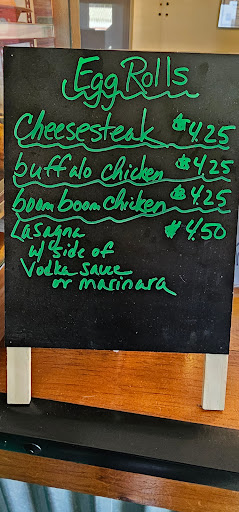 Egg Rolls
Cheesesteak $4.25
buffalo chicken $4.25
boom boom chicken $4.25
Lasagna $4.50
w/ side of
Vodka sauce
or marinara